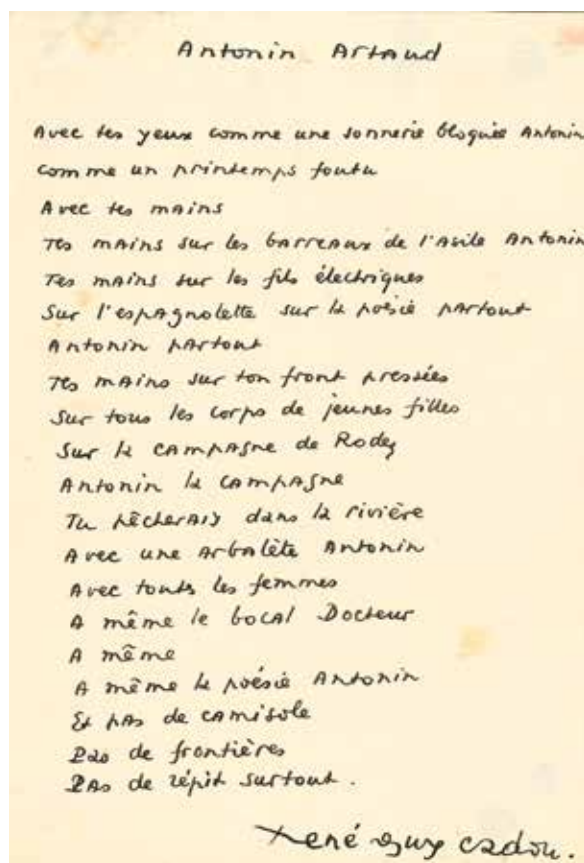 Antonin Artaud
Avec tes yeux comme une sonnerie bloquée Antonin
comme un printemps foutu
Avec tes mains
Tes mains sur les barreaux de l'asile Antonin
Tes mains sur les fils électriques
Sur l'espagnolette sur la poésie partout
Antonin partout
Tes mains sur ton front pressées
Sur tous les corps de jeunes filles
Sur la campagne de Rodez
Antonin la campagne
Tu pêcherais dans la rivière
Avec une arbalète Antonin
Avec toutes les femmes
A même le bocal Docteur
A même
A même la poésie Antonin
Et pas de camisole
Pas de frontières
Pas de répit surtout.
René Guy Cadou.